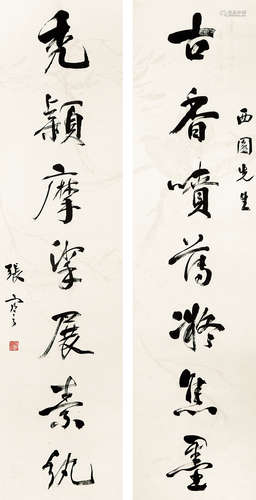 西園先生
古香噴薄凝焦墨
禿穎摩挲展素紈
張